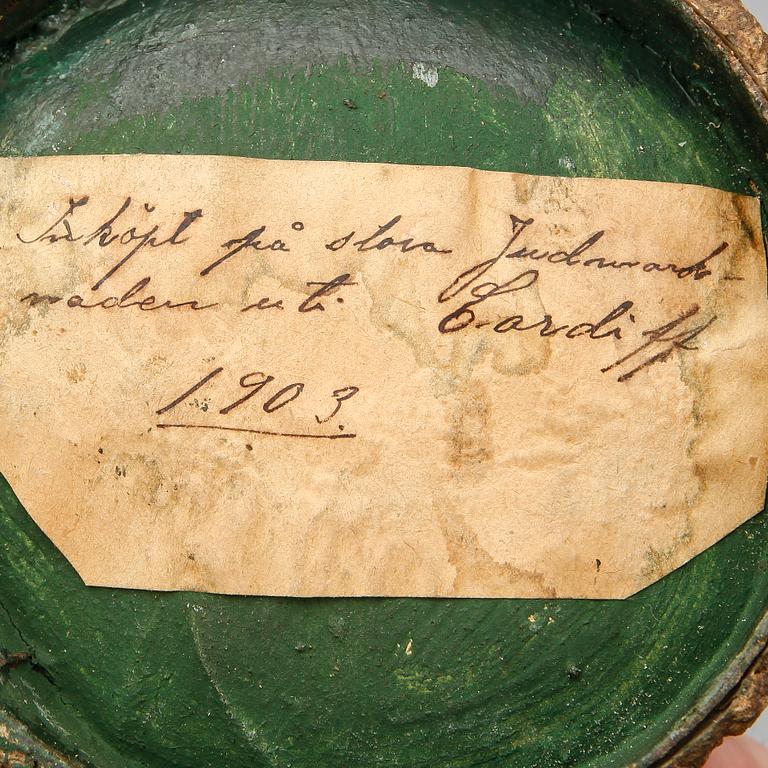 Inköpt på stora Judmark-
naden uti Cardiff
1903.